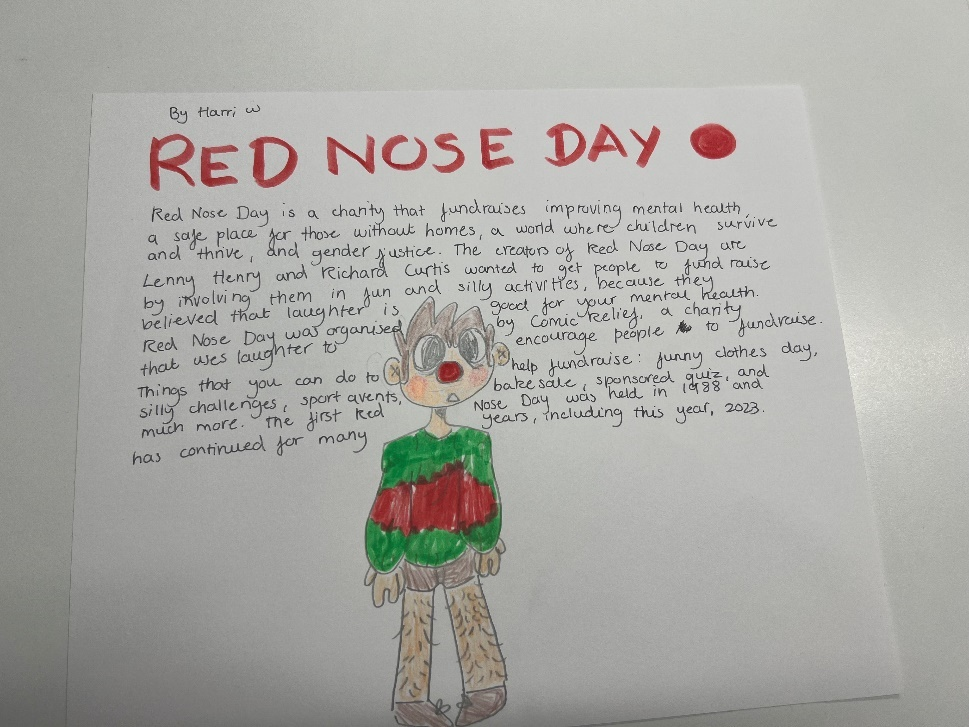 By Harri W
RED NOSE DAY
Red Nose Day is a charity that fundraises improving mental health,
a safe place for those without homes, a world where children survive
and thrive, and gender justice. The creators of Red Nose Day are
Lenny Henry and Richard Curtis wanted to get people to fund raise
by involving them in fun and silly activities, because they
believed that laughter is good for your mental health.
Red Nose Day was organised by Comic Relief, a charity
that uses laughter to encourage people to fundraise.
Things that you can do to help fundraise: funny clothes day,
silly challenges, sport avents, bakesale, sponsored quiz, and
much more. The first Red Nose Day was held in 1988 and
has continued for many years, including this year, 2023.